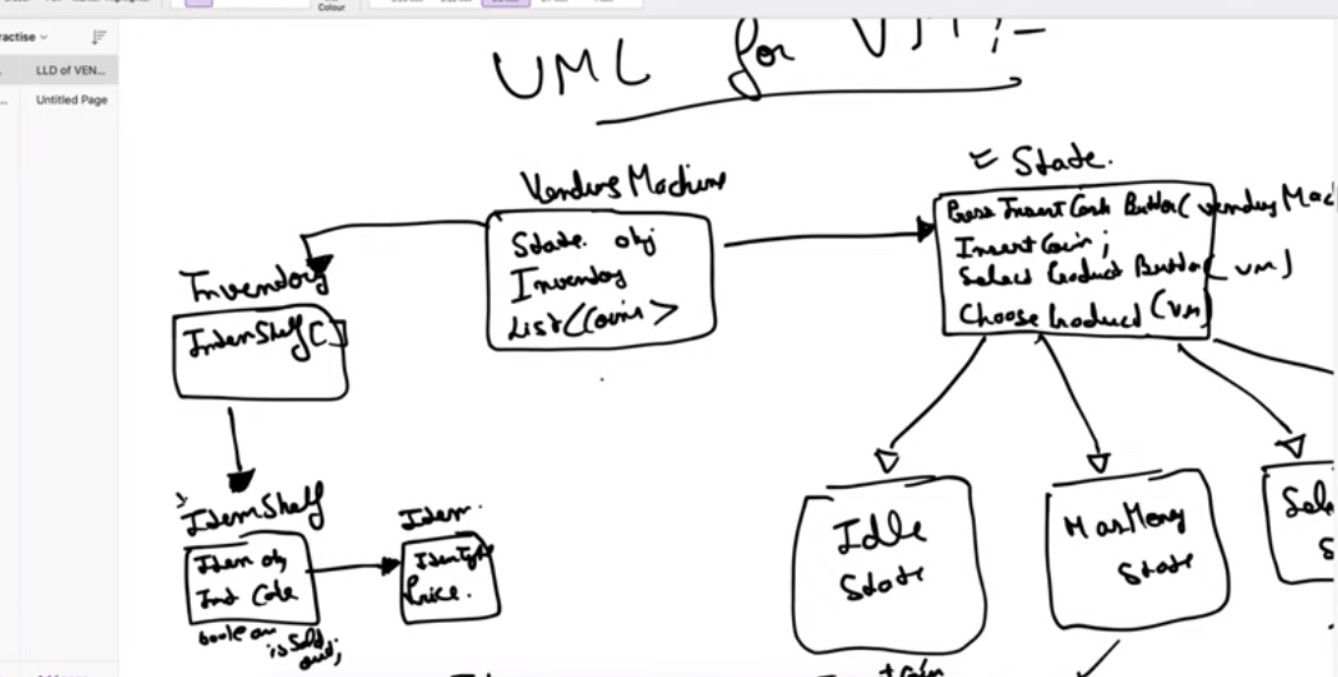 Colour
ractise
LLD of VEN...
Untitled Page
UML for VM:-
Vending Machine
State obj
Inventory
List<Coins>
Inventory
ItemShelf[]
ItemShelf
Item obj
Int Code
boolean
is Sold
out;
Item
ItemType
Price.
State.
Press Insert Cash Button(Vending Mac
Insert Coin;
Select Product Button(VM)
Choose Product (VM)
Idle
State
HasMoney
State
Sele
S